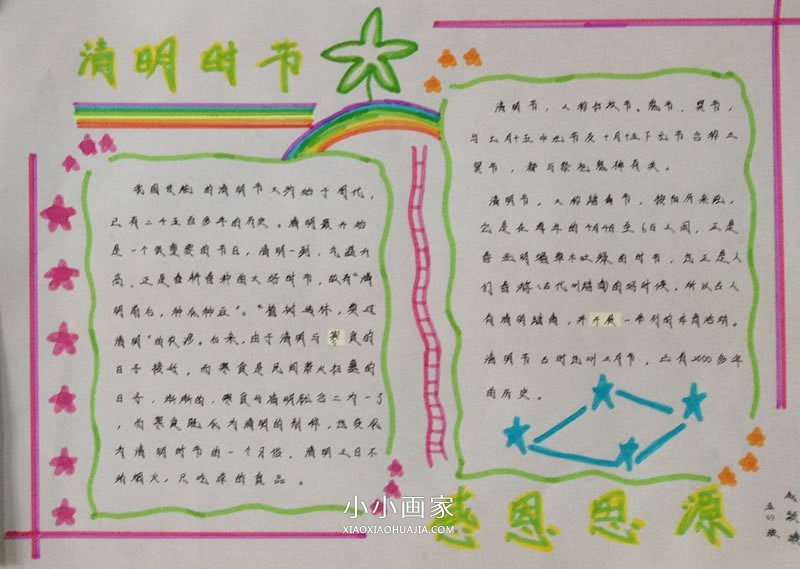 清明时节
我国传统的清明节大约始于周代,
已有二千五百多年的历史。清明最开始
是一个很重要的节日,清明一到,气温升
高,正是春耕春种的大好时节,故有“清
明前后,种瓜种豆”。“植树造林,莫过
清明”的农谚。后来,由于清明与寒食的
日子接近,而寒食是民间禁火扫墓的
日子,渐渐的,寒食与清明就合二为一了
,而寒食既成为清明的别称,也变成
为清明时节的一个习俗,清明之日不
动烟火,只吃凉的食品。
清明节,又称扫坟节、鬼节、冥节,
与七月十五中元节及十月十五下元节合称三
冥节,都与祭祀鬼神有关。
清明节,又称踏青节,按阳历来说,
它是在每年的4月4日至6日之间,正是
春光明媚草木吐绿的时节,也正是人
们春游(古代叫踏青)的好时候,所以古人
有清明踏青,并开展一系列的体育活动。
清明节古时也叫三月节,已有2000多年
的历史。
感恩思源
小小画家
XIAOXIAOHUAJIA.COM